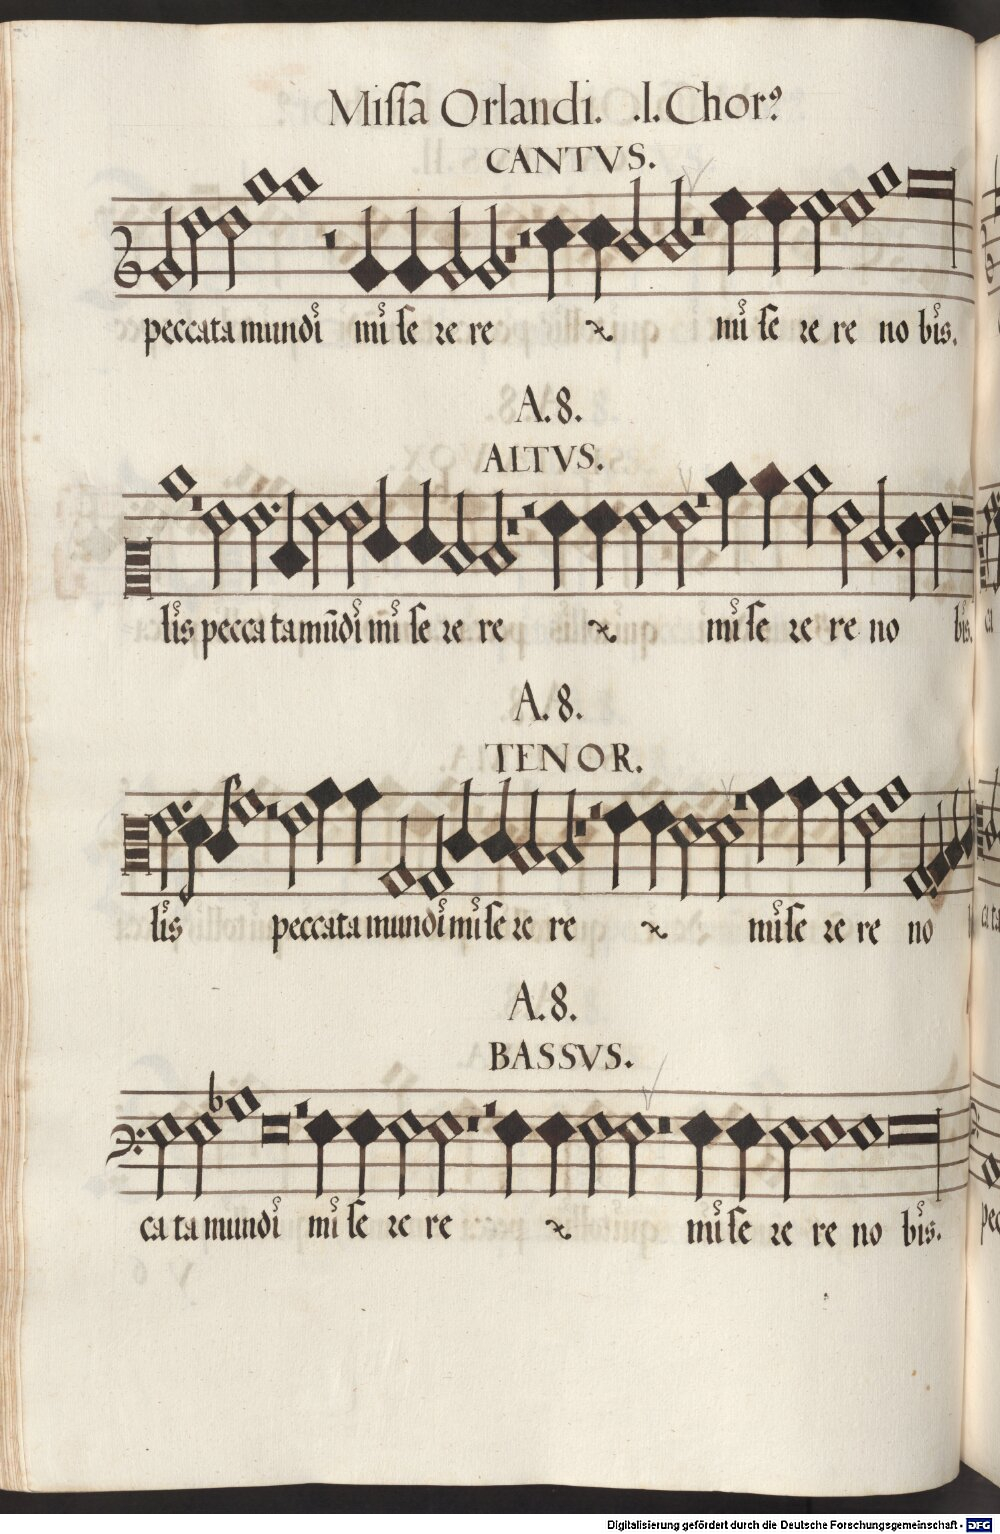 Missa Orlandi. .I. Chor⁹
CANTVS.
peccata mundi mi se re re no bis.
A. 8.
ALTVS.
lis pecca ta mūdi mi se re re mi se re re no bis.
A. 8.
TENOR.
lis peccata mundi mi se re re mi se re re no
A. 8.
BASSVS.
ca ta mundi mi se re re mi se re re no bis.
Digitalisierung gefördert durch die Deutsche Forschungsgemeinschaft - DFG